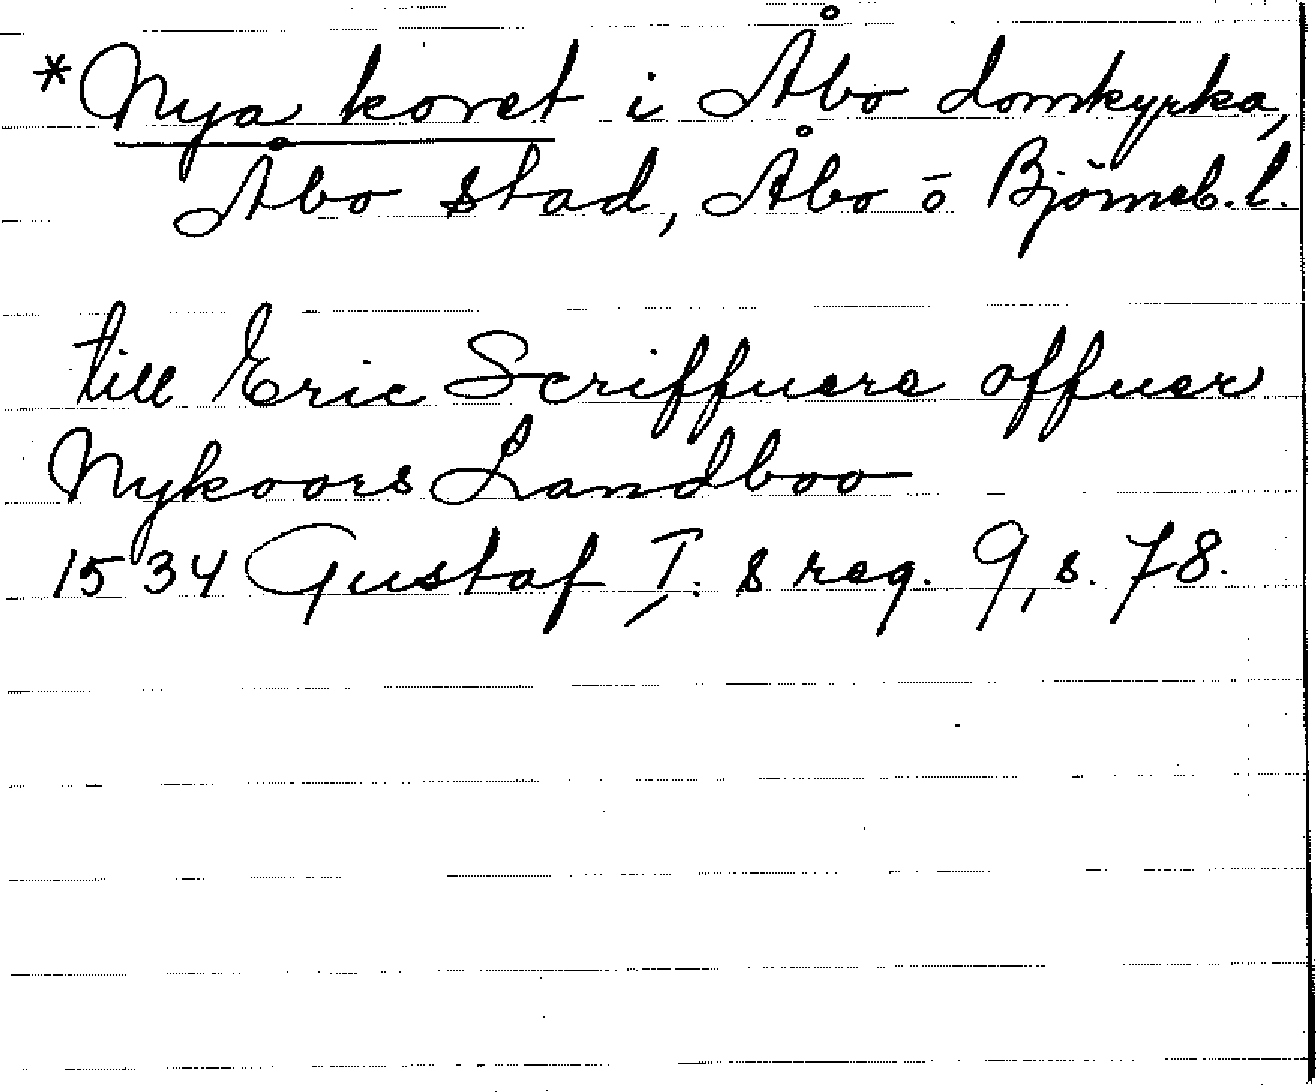 *Nya koret i Åbo domkyrka,
Åbo stad, Åbo ō Björneb.l.
till Eric Scriffuere offuer
Nykoors Landboo
1534 Gustaf I:s reg. 9, s. 78.